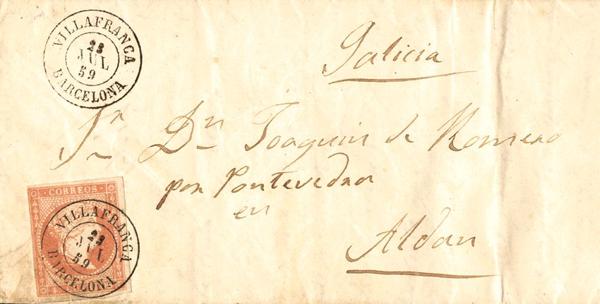 VILLAFRANCA
23
JUL
59
BARCELONA
Galicia
Sr Dn Joaquin de Romero
por Pontevedra
en
Aldan
CORREOS
VILLAFRANCA
23
JUL
59
BARCELONA